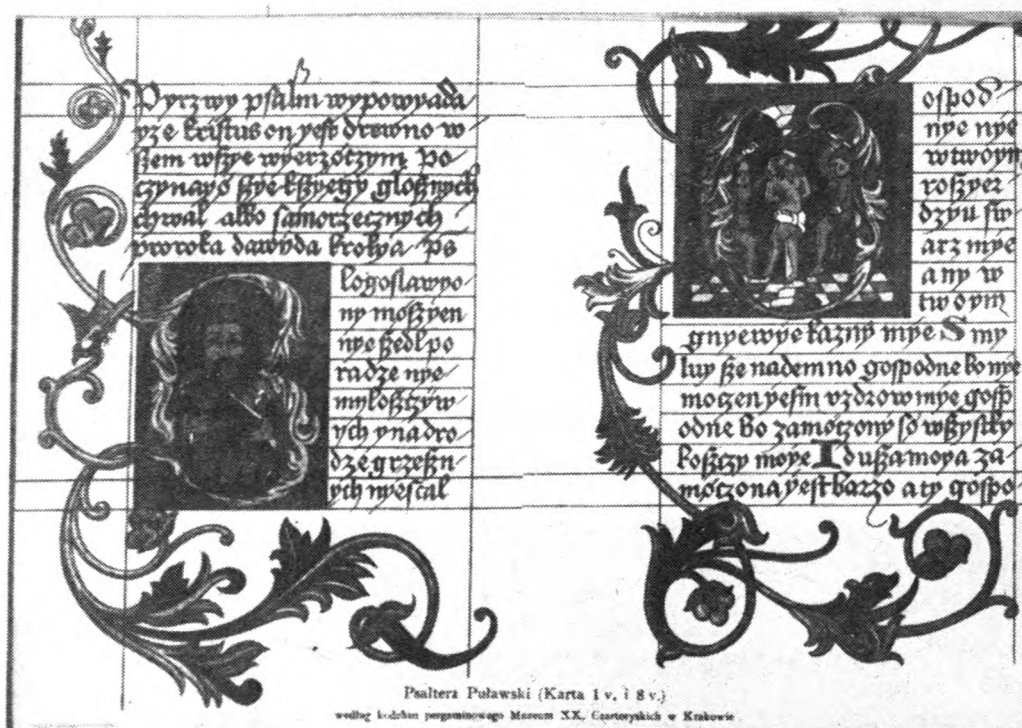 Pyrzwy psalm wypowyada
yze kristus on yest drzewno w
szem wszye wyerzóczym Po
czynayó szye kszyęgy glosznych
chwal albo samorzecznych
proroka dawyda krolya ps
logoslawyo
ny moszyen
nye szedl po
radze nye
myloszczyw
ych y na dro
dze grzeszn
ych nye stal
ospod
nye nye
w twoym
roszyer
dzyu sw
arz mye
a ny w
twoym
gnyewye kazny mye S my
luy sze nade mno gospodne bo nye
moczen yesm vzdrow mye gosp
odne Bo zamóczony só wszystky
koszczy moye I dusza moya za
móczona yest barzo a ty gospo
Psałterz Puławski (Karta 1 v. i 8 v.)
według kodeksu pergaminowego Muzeum XX. Czartoryskich w Krakowie